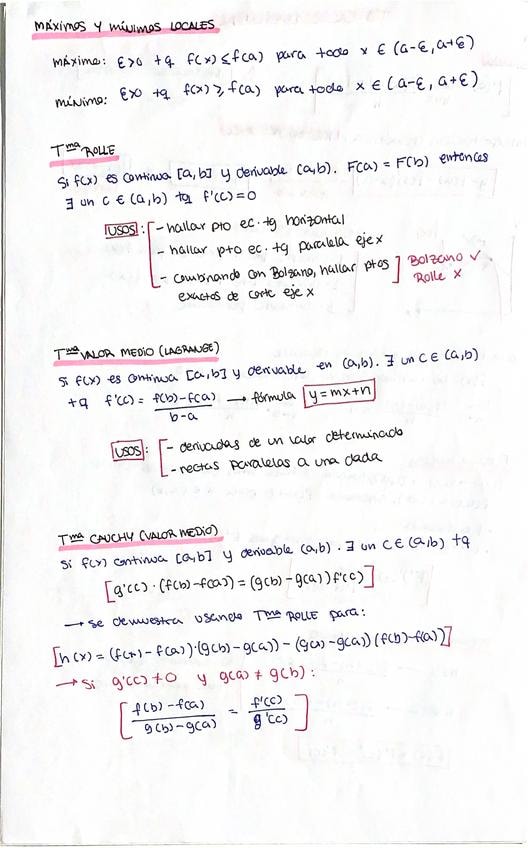 MÁXIMOS Y MÍNIMOS LOCALES
MÁXIMO: ε>0 tq f(x) ≤ f(a) para todo x ∈ (a-ε, a+ε)
MÍNIMO: ε>0 tq f(x) ≥ f(a) para todo x ∈ (a-ε, a+ε)
Tma ROLLE
Si f(x) es continua [a,b] y derivable (a,b). F(a) = F(b) entonces
∃ un c ∈ (a,b) tq f'(c)=0
USOS: - hallar pto ec. tg horizontal
- hallar pto ec. tg paralela eje x
- combinando con Bolzano, hallar ptos ] Bolzano ✓
exactos de corte eje x Rolle x
Tma VALOR MEDIO (LAGRANGE)
Si f(x) es continua [a,b] y derivable en (a,b). ∃ un c ∈ (a,b)
tq f'(c) = f(b)-f(a) / b-a → fórmula y=mx+n
USOS: - derivadas de un valor determinado
- rectas paralelas a una dada
Tma CAUCHY (VALOR MEDIO)
Si f(x) continua [a,b] y derivable (a,b). ∃ un c ∈ (a,b) tq
[g'(c) · (f(b)-f(a)) = (g(b)-g(a)) f'(c)]
→ se demuestra usando Tma ROLLE para:
[h(x) = (f(x)-f(a))·(g(b)-g(a)) - (g(x)-g(a)) (f(b)-f(a))]
→ Si g'(c) ≠ 0 y g(a) ≠ g(b):
[f(b)-f(a) / g(b)-g(a) = f'(c) / g'(c)]